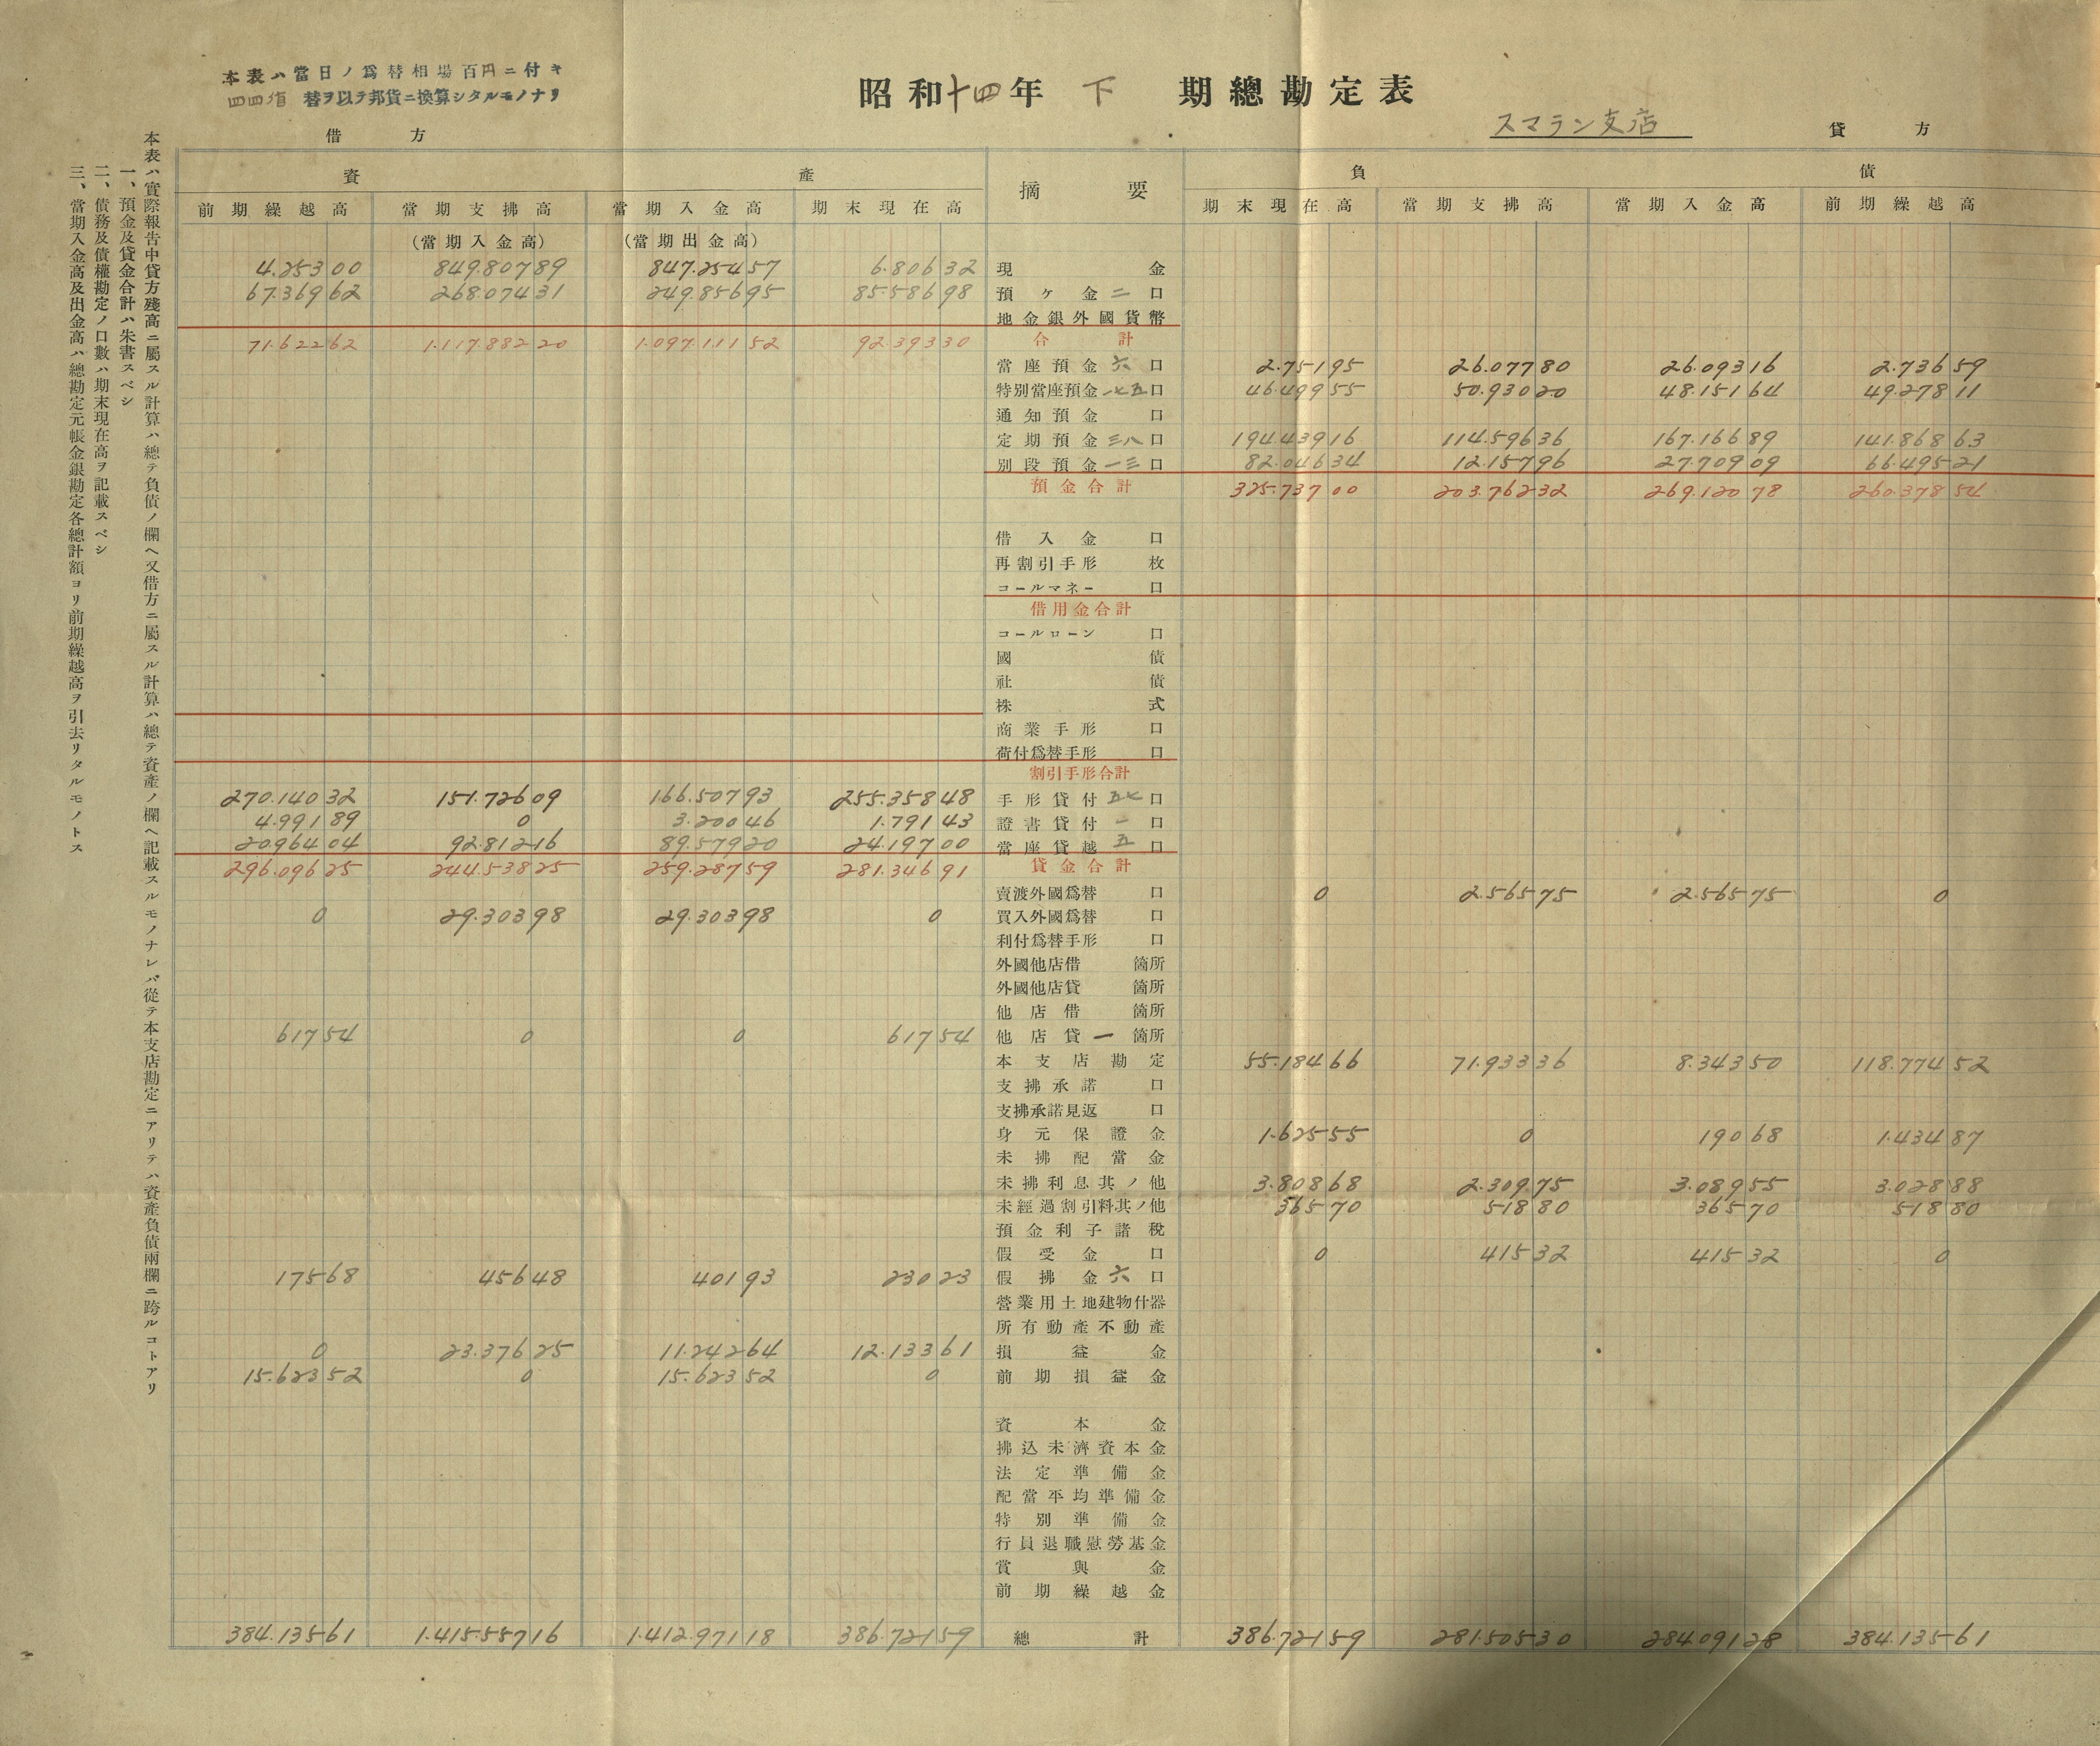 本表ハ當日ノ爲替相場百円ニ付キ
四四盾 替ヲ以テ邦貨ニ換算シタルモノナリ
昭和十四年 下 期總勘定表
スマラン支店
借方 貸方
本表ハ實際報告中貸方殘高ニ屬スル計算ハ總テ負債ノ欄ヘ又借方ニ屬スル計算ハ總テ資產ノ欄ヘ記載スルモノナレバ從テ本支店勘定ニアリテハ資產負債兩欄ニ跨ルコトアリ
一、預金及貸金合計ハ朱書スベシ
二、債務及債權勘定ノ口數ハ期末現在高ヲ記載スベシ
三、當期入金高及出金高ハ總勘定元帳金銀勘定各總計額ヨリ前期繰越高ヲ引去リタルモノトス
資產 摘要 負債
前期繰越高 當期支拂高 當期入金高 期末現在高 期末現在高 當期支拂高 當期入金高 前期繰越高
(當期入金高) (當期出金高)
4.253 00 849.807 89 847.254 57 6.806 32 現金
67.369 62 268.074 31 249.856 95 85.586 98 預ケ金二口
地金銀外國貨幣
71.622 62 1.117.882 20 1.097.111 52 92.393 30 合計
當座預金六口 2.751 95 26.077 80 26.093 16 2.736 59
特別當座預金一七五口 46.499 55 50.930 20 48.151 64 49.278 11
通知預金口
定期預金三八口 194.439 16 114.596 36 167.166 89 141.868 63
別段預金一三口 82.046 34 12.157 96 27.709 09 66.495 21
預金合計 325.737 00 203.762 32 269.120 78 260.378 54
借入金口
再割引手形枚
コールマネー口
借用金合計
コールローン口
國債
社債
株式
商業手形口
荷付爲替手形口
割引手形合計
270.140 32 151.726 09 166.507 93 255.358 48 手形貸付五七口
4.991 89 0 3.200 46 1.791 43 證書貸付一口
20.964 04 92.812 16 89.579 20 24.197 00 當座貸越五口
296.096 25 244.538 25 259.287 59 281.346 91 貸金合計
賣渡外國爲替口 0 2.565 75 2.565 75 0
0 29.303 98 29.303 98 0 買入外國爲替口
利付爲替手形口
外國他店借箇所
外國他店貸箇所
他店借箇所
617 54 0 0 617 54 他店貸一箇所
本支店勘定 55.184 66 71.933 36 8.343 50 118.774 52
支拂承諾口
支拂承諾見返口
身元保證金 1.625 55 0 190 68 1.434 87
未拂配當金
未拂利息其ノ他 3.808 68 2.309 75 3.089 55 3.028 88
未經過割引料其ノ他 365 70 518 80 365 70 518 80
預金利子諸稅
假受金口 0 415 32 415 32 0
175 68 456 48 401 93 230 23 假拂金六口
營業用土地建物什器
所有動產不動產
0 23.376 25 11.242 64 12.133 61 損益金
15.623 52 0 15.623 52 0 前期損益金
資本金
拂込未濟資本金
法定準備金
配當平均準備金
特別準備金
行員退職慰勞基金
賞與金
前期繰越金
384.135 61 1.415.557 16 1.412.971 18 386.721 59 總計 386.721 59 281.505 30 284.091 28 384.135 61